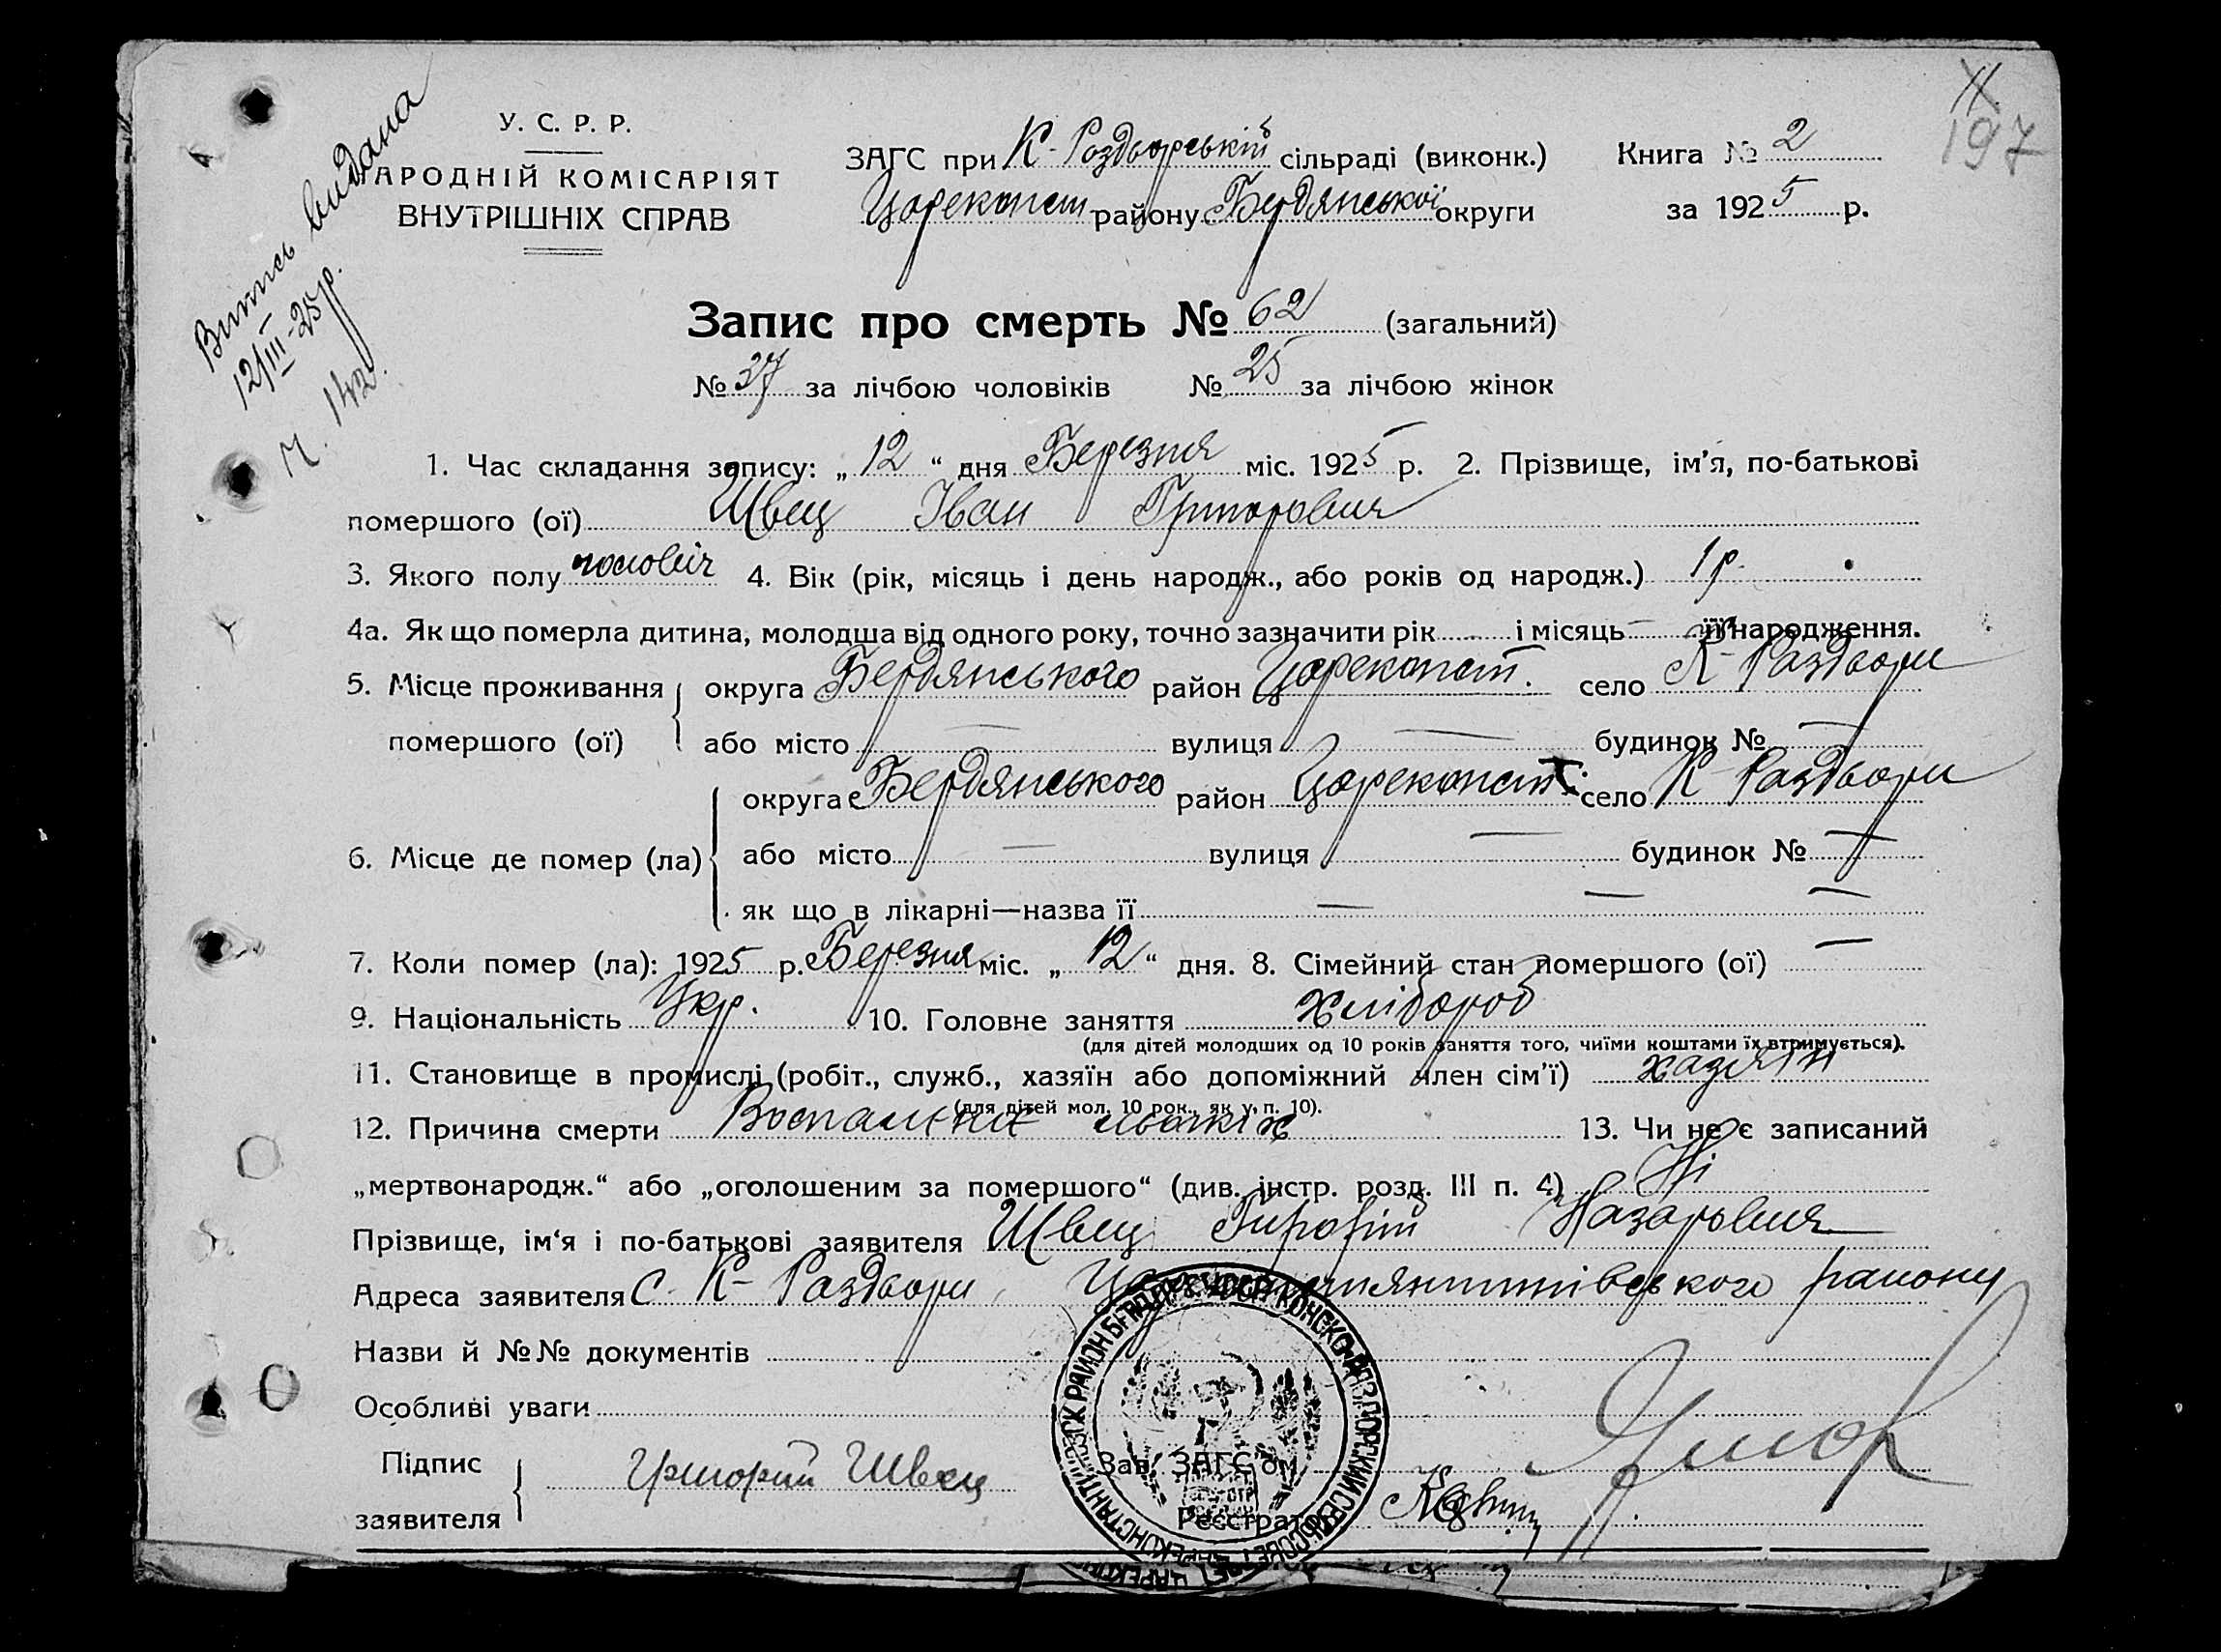 Витись видана
12/III-25р.
Ч. 142.
У. С. Р. Р.
НАРОДНІЙ КОМІСАРІЯТ
ВНУТРІШНІХ СПРАВ
ЗАГС при К-Роздорській сільраді (виконк.)
Цареконст району Бердянської округи
Книга № 2
за 1925 р.
197
Запис про смерть № 62 (загальний)
№ 37 за лічбою чоловіків № 25 за лічбою жінок
1. Час складання запису: „ 12 “ дня Березня міс. 1925 р. 2. Прізвище, ім'я, по-батькові
помершого (ої) Швец Іван Григорович
3. Якого полу чоловіч 4. Вік (рік, місяць і день народж., або років од народж.) 1 р.
4а. Як що померла дитина, молодша від одного року, точно зазначити рік — і місяць — її народження.
5. Місце проживання округа Бердянського район Цареконст. село К-Раздори
помершого (ої) або місто — вулиця — будинок № —
округа Бердянського район Цареконст. село К-Раздори
6. Місце де помер (ла) або місто — вулиця — будинок № —
як що в лікарні—назва її — — —
7. Коли помер (ла): 1925 р. Березня міс. „ 12 “ дня. 8. Сімейний стан помершого (ої) —
9. Національність Укр. 10. Головне заняття хлібороб
(для дітей молодших од 10 років заняття того, чиїми коштами їх втримується).
11. Становище в промислі (робіт., служб., хазяїн або допоміжний член сім'ї) хазяїн
(для дітей мол. 10 рок., як у п. 10).
12. Причина смерти Воспаління 13. Чи не є записаний
„мертвонародж.“ або „оголошеним за помершого“ (див. інстр. розд. III п. 4) Ні
Прізвище, ім‘я і по-батькові заявителя Швец Назарович
Адреса заявителя с. К-Раздори, району
Назви й №№ документів
Особливі уваги
Підпис
заявителя
Григорий Швец
Зав. ЗАГС'ом
Реєстратор